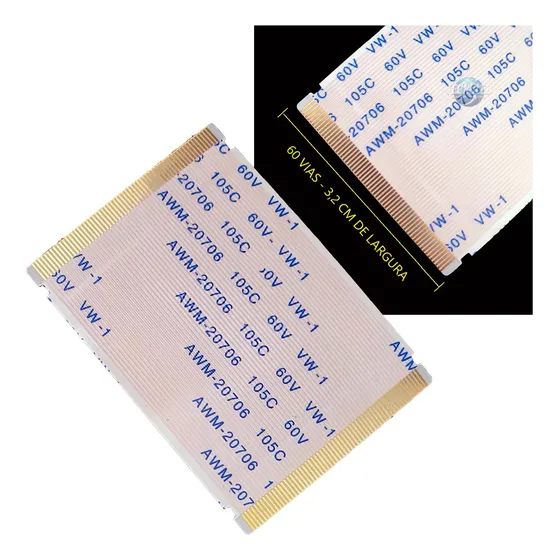 60V VW-1
105C 60V VW-1
AWM-20706 105C 60V VW-1
AWM-20706 105C
AWM-20706
VW-1
60V VW-1
60 VIAS - 3,2 CM DE LARGURA
60V VW-1
AWM-20706 105C 60V VW-1
AWM-20706 105C 60V- VW-1
AWM-20706 105C 60V VW-1
AWM-20706 105C 60V VW-1
AWM-20706 105C 60V VW-1
AWM-20706 105C 60V VW-1
AWM-20706 1
AWM-2070
VW-1
60V VW-1
AWM